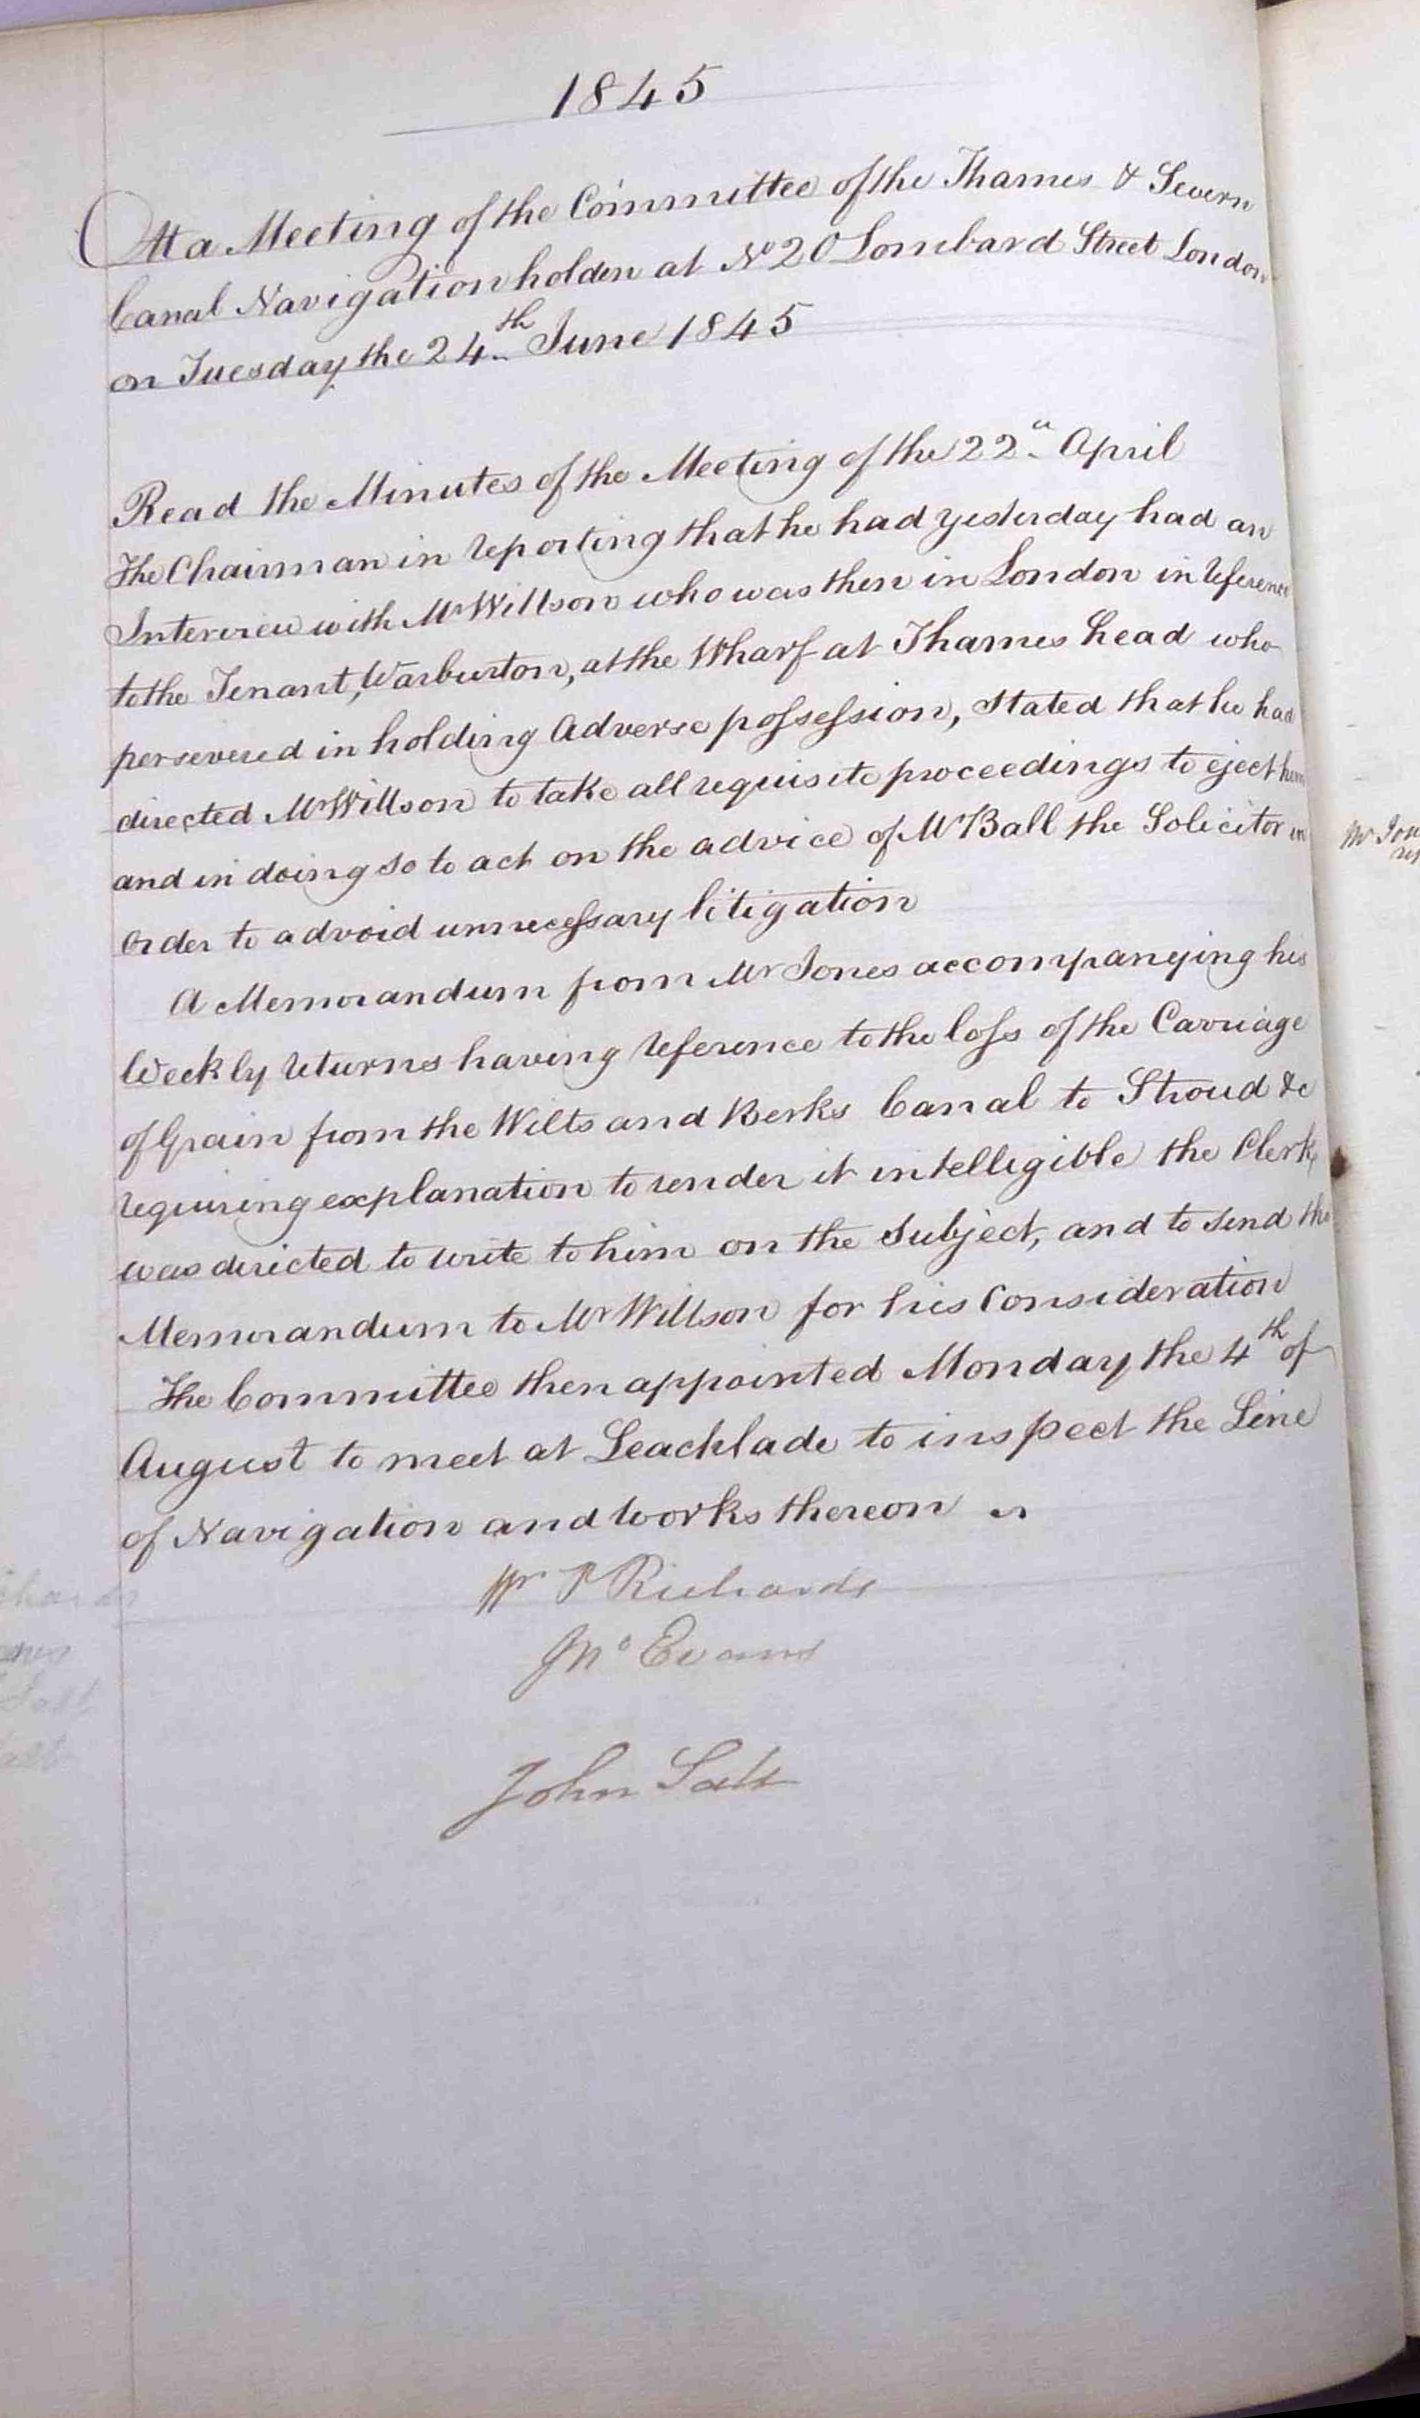 1845
At a Meeting of the Committee of the Thames & Severn
Canal Navigation holden at No 20 Lombard Street London
on Tuesday the 24th June 1845
Read the Minutes of the Meeting of the 22d April
The Chairman in reporting that he had yesterday had an
Interview with Mr Willson who was then in London in reference
to the Tenant, Warburton, at the Wharf at Thames head who
persevered in holding Adverse possession, stated that he had
directed Mr Willson to take all requisite proceedings to eject him
and in doing so to act on the advice of Mr Ball the Solicitor in
order to advoid unnecessary litigation
A Memorandum from Mr Jones accompanying his
Weekly returns having reference to the loss of the Carriage
of Grain from the Wilts and Berks Canal to Stroud &c
requiring explanation to render it intelligible the Clerk
was directed to write to him on the Subject, and to send the
Memorandum to Mr Willson for his Consideration
The Committee then appointed Monday the 4th of
August to meet at Leachlade to inspect the Line
of Navigation and Works thereon
Wm P Richards
Jno Evans
John Salt
Mr Jon